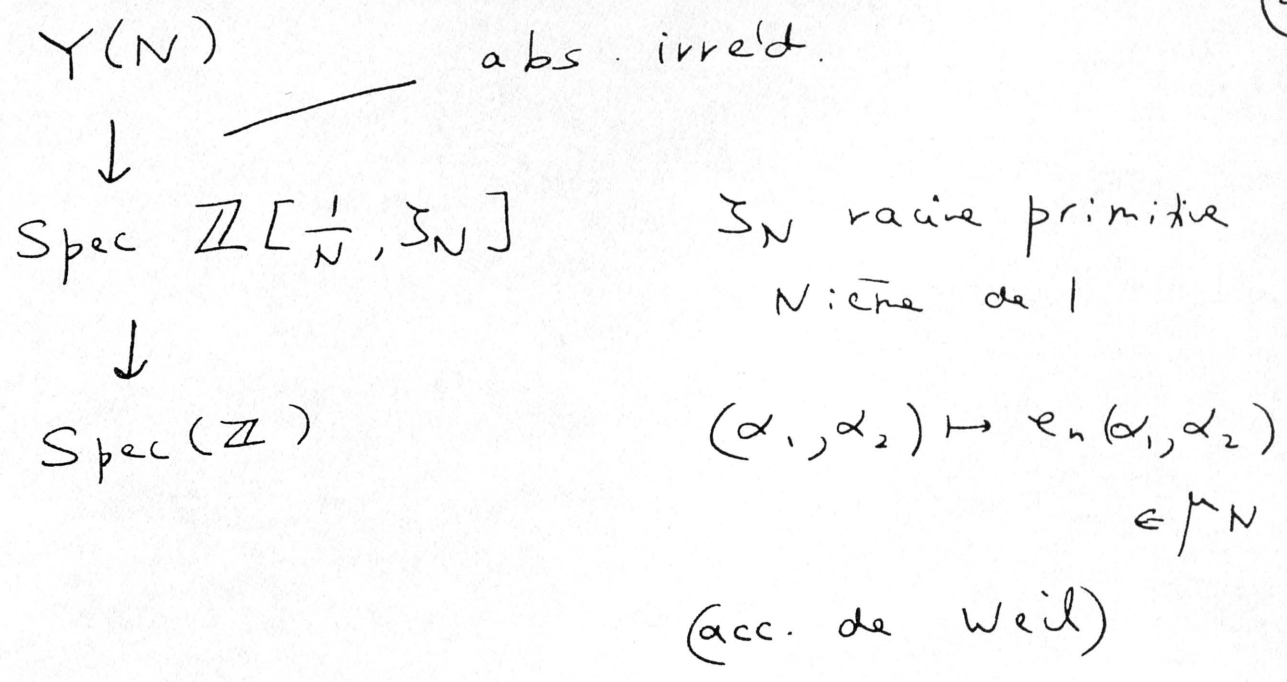 Y(N) abs. irréd.
↓
Spec ℤ[1/N, ζ_N] ζ_N racine primitive
Nième de 1
↓
Spec(ℤ) (α₁, α₂) ↦ e_n(α₁, α₂)
∈ μ_N
(acc. de Weil)